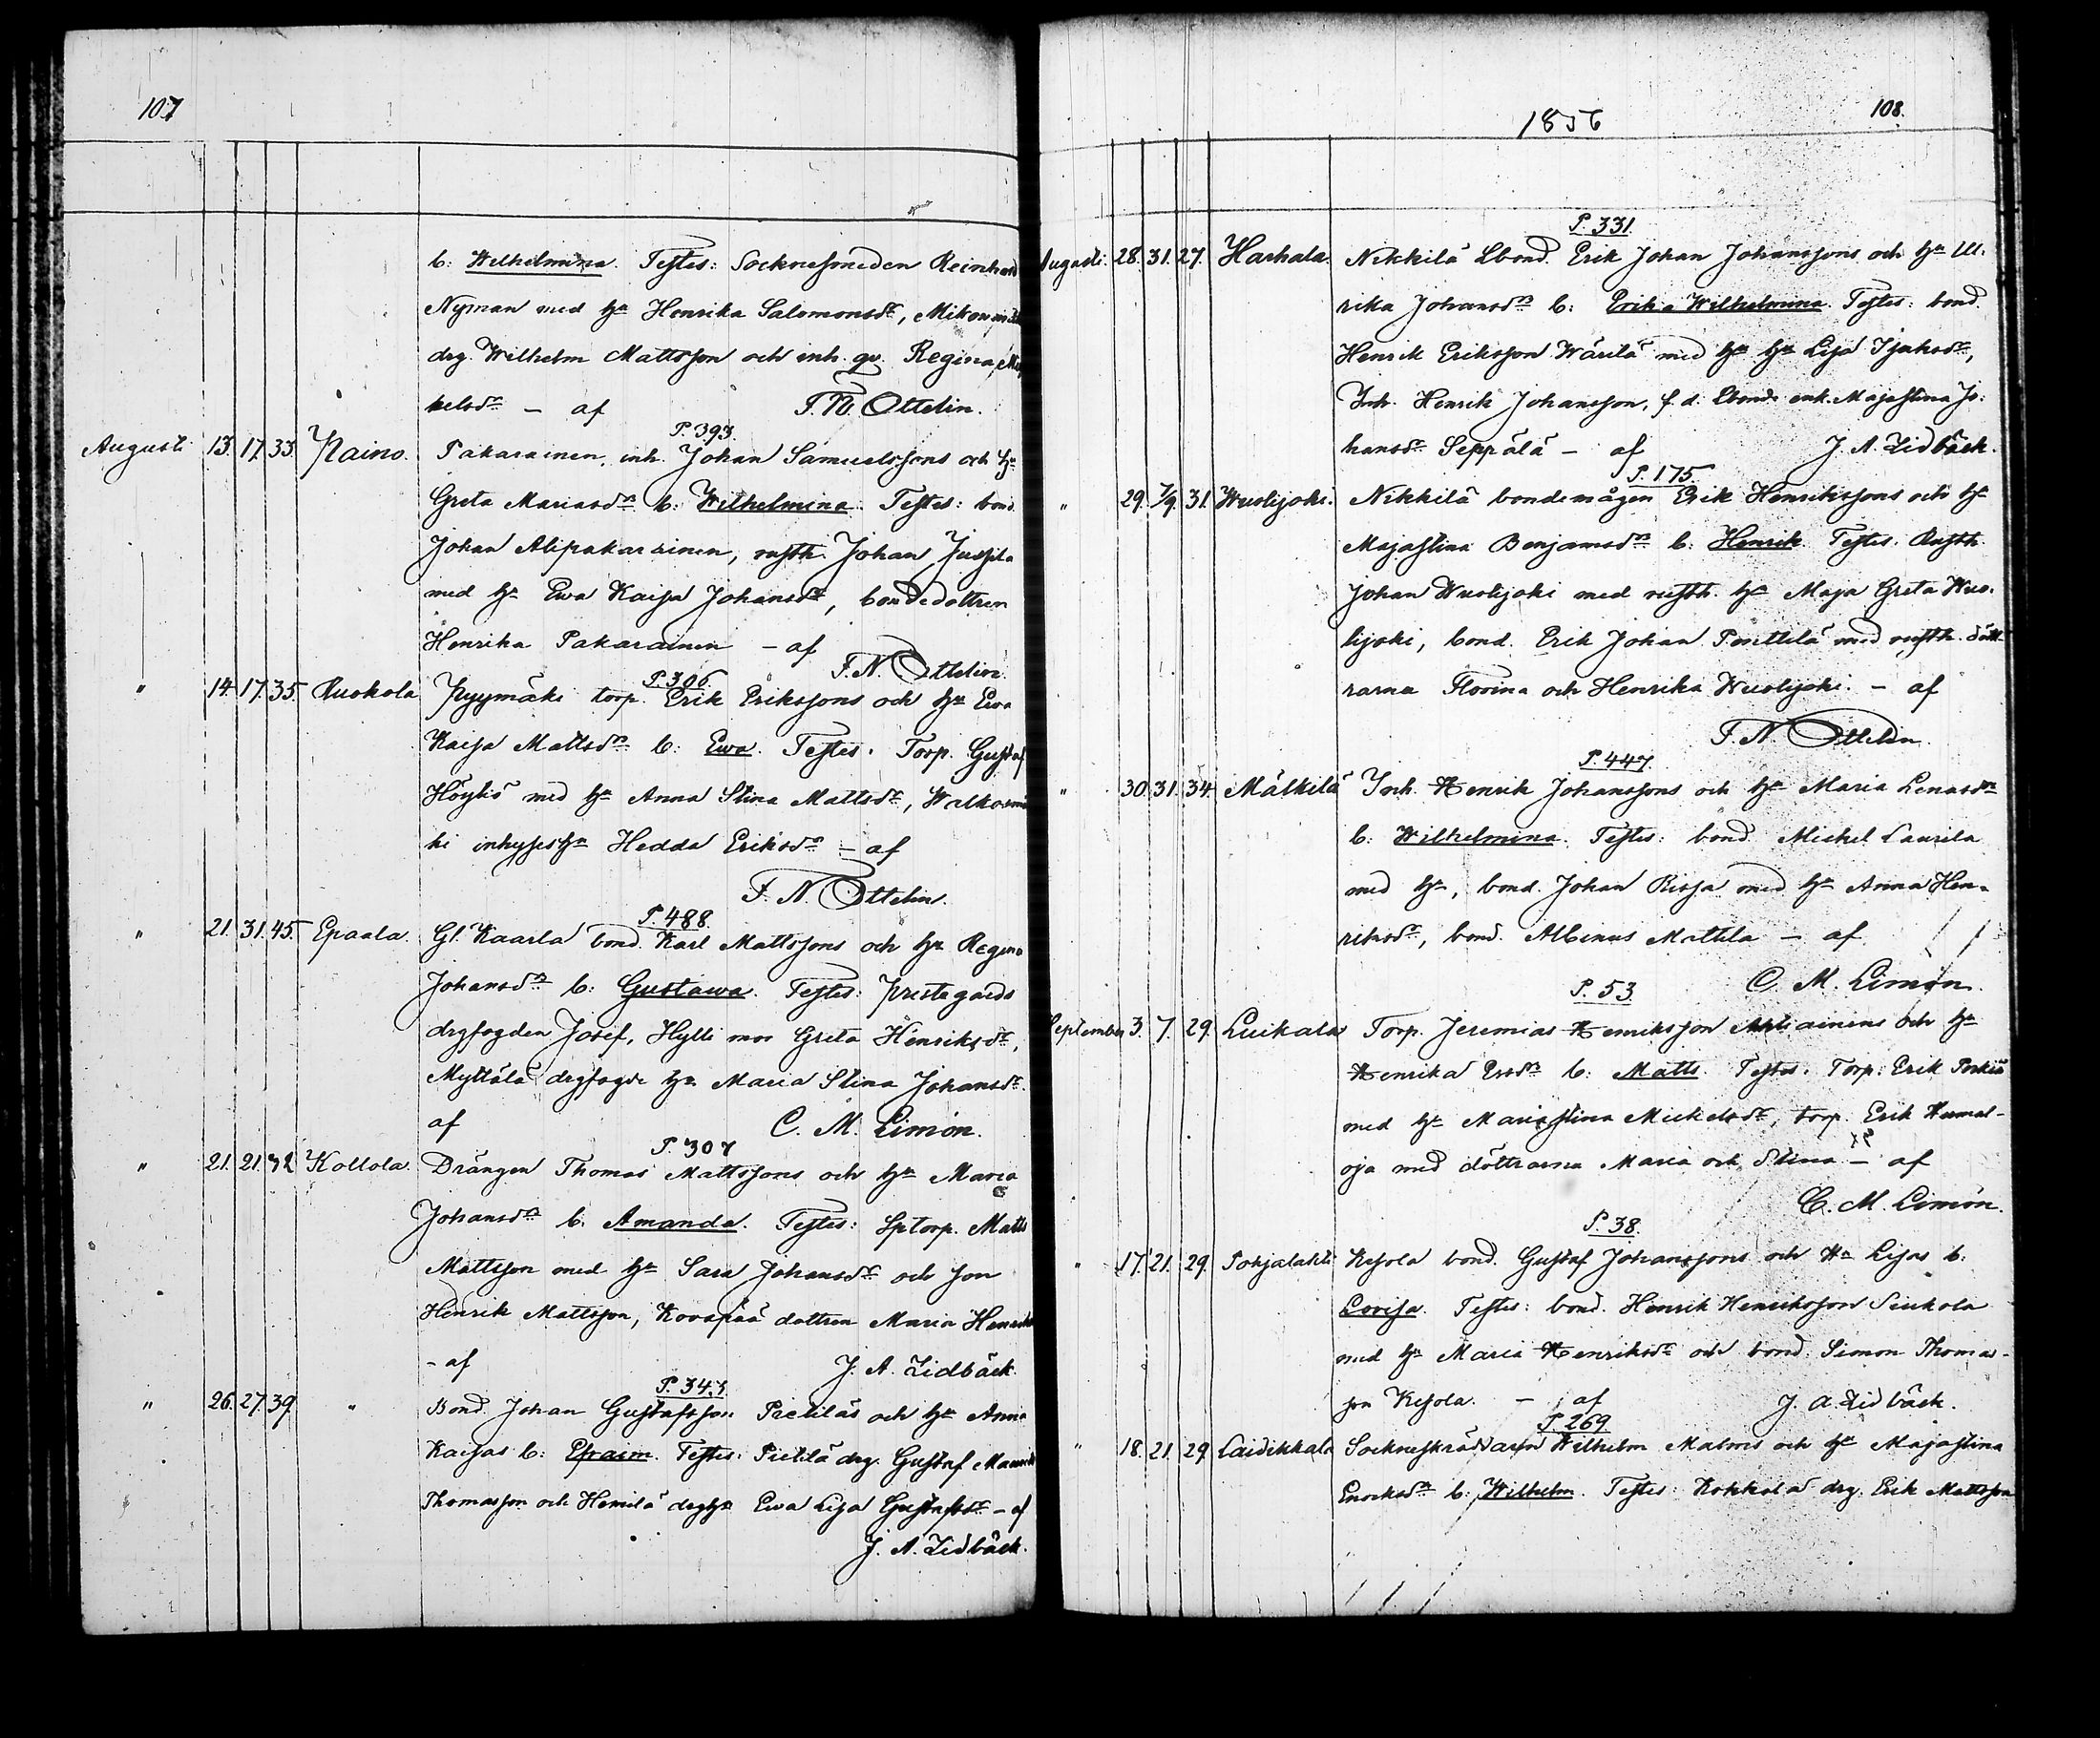 107
b: Wilhelmina. Testes: Socknesmeden Reinhard
Nyman med h:u Henrika Salomonsdr,
drg. Wilhelm Mattsson och inh. qv. Regina Mic
kelsdr – af F. N. Ottelin.
P. 393.
Augusti 13. 17. 33. Raino. Pakarainen, inh. Johan Samuelssons och h:u
Greta Mariasdrs b: Wilhelmina. Testes: bond.
Johan Alipakarainen, rusth. Johan Jussila
med h:u Ewa Kaisa Johansdr, bondedottren
Henrika Pakarainen – af
F. N. Ottelin.
P. 306.
" 14. 17. 35. Ruokola Pyymäki torp. Erik Erikssons och h:u Ewa
Kaisa Mattsdrs b: Ewa. Testes: Torp. Gustaf
Höyliö med h:u Anna Stina Mattsdr, Walkamä
ki inhyses h:u Hedda Eriksdr – af
F. N. Ottelin.
P. 488.
" 21. 31. 45. Epaala Gl. Kaarla bond. Karl Mattssons och h:u Regina
Johansdrs b: Gustawa. Testes: Prestegårds
drgfogden Josef, Hylli mor Greta Henriksdr,
Myttälä drgfogde h:u Maria Stina Johansdr.
af C. M. Limón.
P. 307
" 21. 21. 32 Kollola Drängen Thomas Mattssons och h:u Maria
Johansdrs b. Amanda. Testes: Sptorp. Matts
Mattsson med h:u Sara Johansdr och son
Henrik Mattsson, Kovapää dottren Maria Henriks
– af J. A. Lidbäck
P. 343
" 26. 27. 39. " Bond. Johan Gustafsson Pietiläs och h:u Anna
Kaisas b: Efraim. Testes: Pietilä drg. Gustaf
Thomasson och Hemilä drg h:u Ewa Lisa Gustafsdr – af
J. A. Lidbäck.
1856
108.
P. 331.
Augusti. 28. 31. 27. Harhala. Nikkilä Lbond. Erik Johan Johanssons och h:u Ul.
rika Johansdrs b: Erika Wilhelmina. Testes: bond.
Henrik Eriksson Wärilä med h:u h:u Lisa Isaksdr,
Inh. Henrik Johansson, f. d. Lbonde enk. Majastina Jo:
hansdr Seppälä – af J. A. Lidbäck.
P. 175.
" 29. 7/9. 31. Wuolijoki. Nikkilä bondemågen Erik Henrikssons och h:u
Majastina Benjamsdrs b: Henrik. Testes: Rusth.
Johan Wuolijoki med rusth. h:u Maja Greta Wuo.
lijoki, bond. Erik Johan Penttilä med rusth. dött
rarna Flovina och Henrika Wuolijoki. – af
F. N. Ottelin
P. 447.
" 30. 31. 34. Mälkilä Inh. Henrik Johanssons och h:u Maria Lenasdrs
b: Wilhelmina. Testes: bond Mickel Laurila
med h:u, bond. Johan Risja med h:u Anna Hen-
riksdr, bond. Albinus Mattila – af
C. M. Limón.
P. 53.
September 3. 7. 29. Luikala Torp. Jeremias Henriksson och h:u
Henrika Ersdrs b: Matts. Testes: Torp. Erik
med h:u Mariastina Mickelsdr, torp. Erik Humal-
oja med döttrarna Maria och Stina – af
C. M. Limón.
P. 38.
" 17. 21. 29. Pohjalahti Kesola bond. Gustaf Johanssons och H:u Lisas b:
Lovisa. Testes: bond. Henrik Henriksson Seukola
med h:u Maria Henriksdr och bond. Simon Thomas-
son Kesola. – af J. A. Lidbäck.
P. 269
" 18. 21. 29. Laidikkala Sockneskräddaren Wilhelm Malms och h:u Majastina
Enocksdrs b: Wilhelm. Testes: Kokkola drg. Erik Mattsson